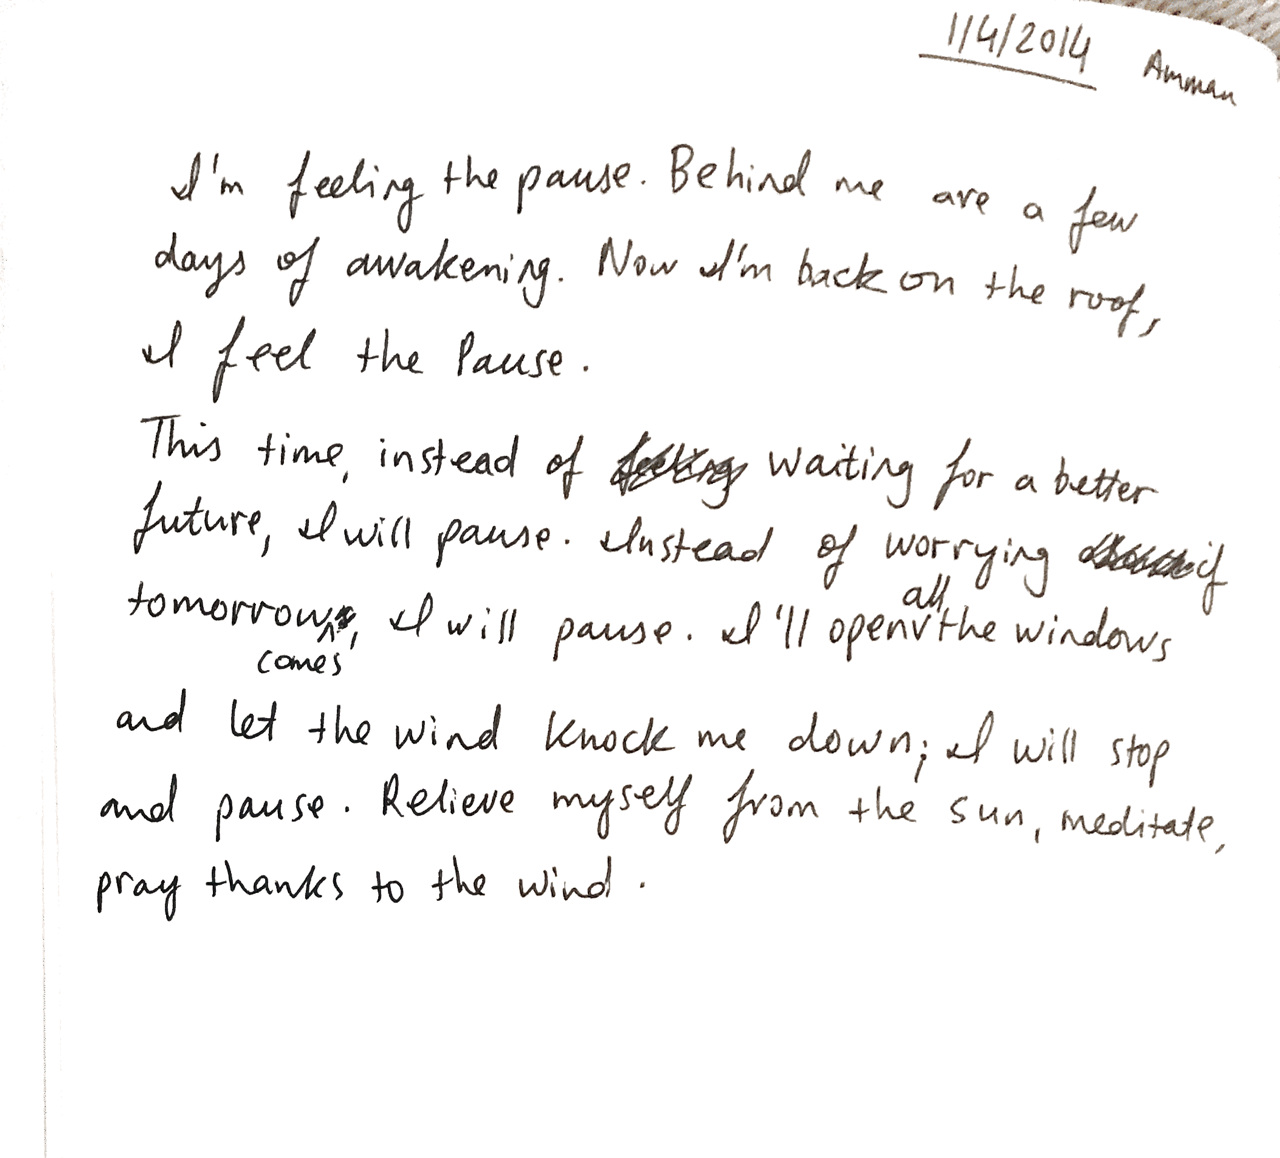 1/4/2014 Amman
I'm feeling the pause. Behind me are a few
days of awakening. Now I'm back on the roof,
I feel the Pause.
This time, instead of waiting for a better
future, I will pause. Instead of worrying if
tomorrow comes, I will pause. I'll open all the windows
and let the wind knock me down; I will stop
and pause. Relieve myself from the sun, meditate,
pray thanks to the wind.